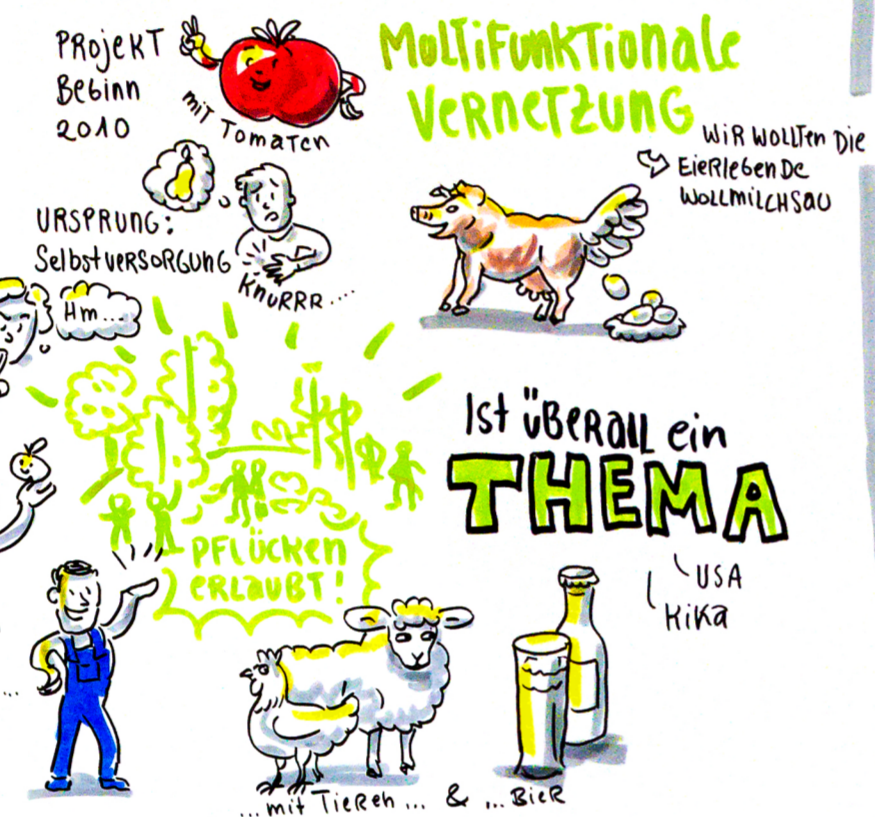 PROJEKT
BEGINN
2010
mit Tomaten
MULTIFUNKTIONALE
VERNETZUNG
WIR WOLLTEN DIE
EIERLEGENDE
WOLLMILCHSAU
URSPRUNG:
SelbstVERSORGUNG
KNURRR....
Hm...
PFLÜCKEN
ERLAUBT!
Ist ÜBERALL ein
THEMA
USA
KiKa
...
...mit Tieren ... & ...BIER